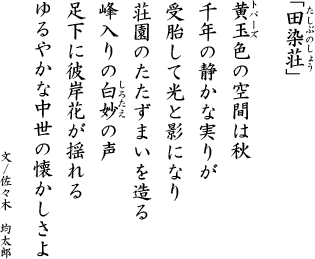 「田染荘」
たしぶのしょう
黄玉色の空間は秋
トパーズ
千年の静かな実りが
受胎して光と影になり
荘園のたたずまいを造る
峰入りの白妙の声
しろたえ
足下に彼岸花が揺れる
ゆるやかな中世の懐かしさよ
文／佐々木 均太郎